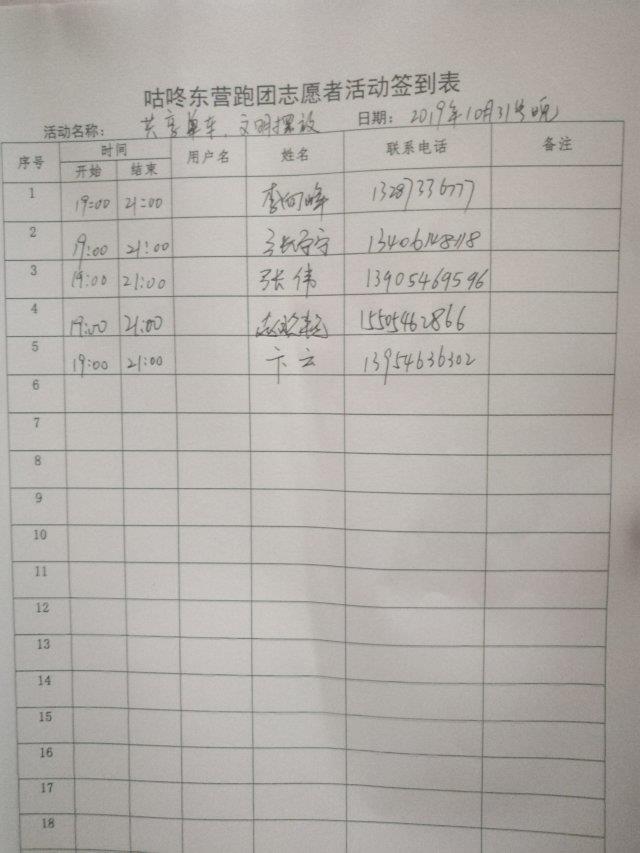 咕咚东营跑团志愿者活动签到表
活动名称: 共享单车、文明摆放 日期: 2019年10月31号晚
序号 时间 用户名 姓名 联系电话 备注
开始 结束
1 19:00 21:00 13287336777
2 19:00 21:00
3 19:00 21:00 张伟 13905469596
4 19:00 21:00 15505462866
5 19:00 21:00 卞云 13954636302
6
7
8
9
10
11
12
13
14
15
16
17
18